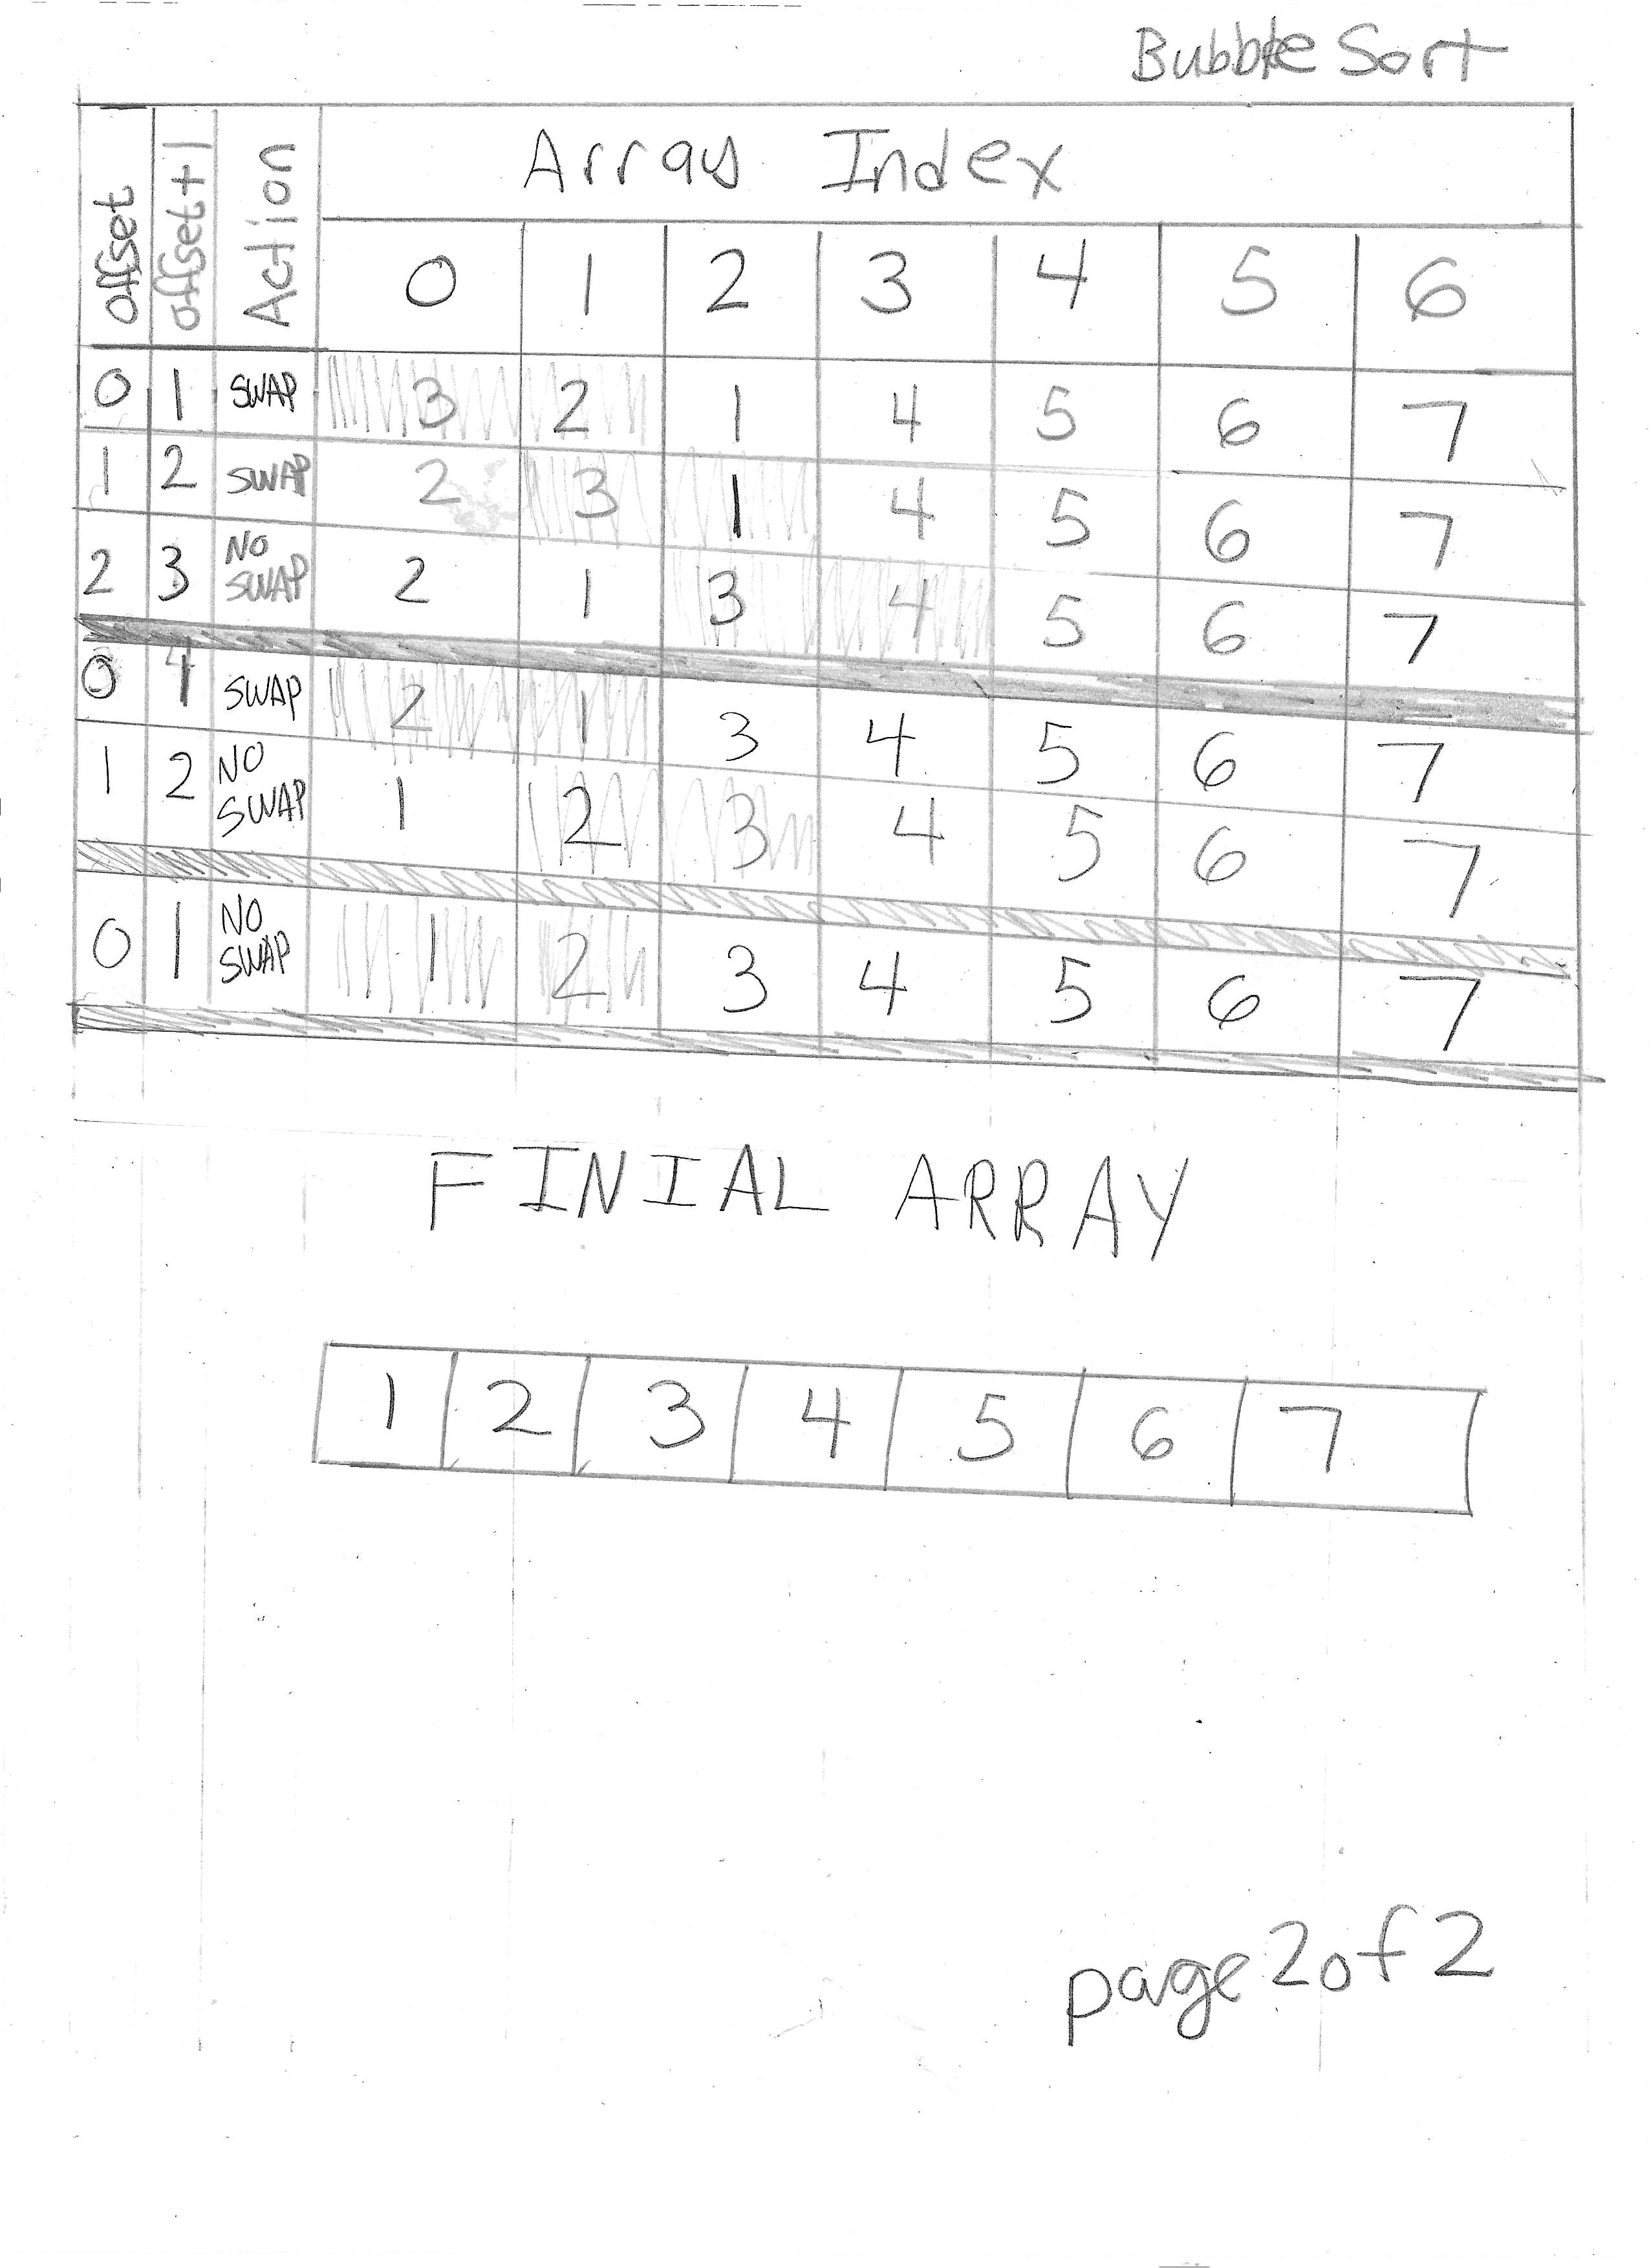 Bubble Sort
offset offset+1 Action Array Index
0 1 2 3 4 5 6
0 1 SWAP 3 2 1 4 5 6 7
1 2 SWAP 2 3 1 4 5 6 7
2 3 NO SWAP 2 1 3 4 5 6 7
0 1 SWAP 2 1 3 4 5 6 7
1 2 NO SWAP 1 2 3 4 5 6 7
0 1 NO SWAP 1 2 3 4 5 6 7
FINIAL ARRAY
1 2 3 4 5 6 7
page 2 of 2